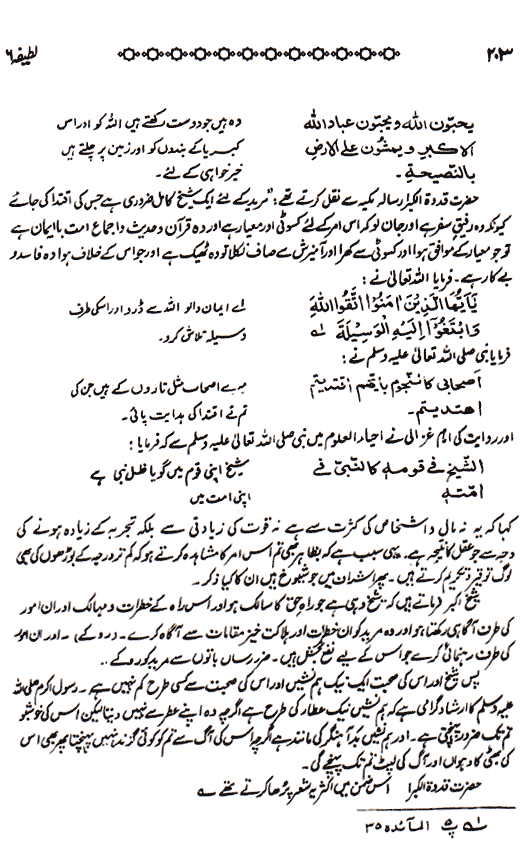 ۲۰۳ لطیفہ ۶
یحبّون اللہ ویحبّون عباد اللہ وہ ہیں جو دوست رکھتے ہیں اللہ کو اور اس
الاکبر ویمشون علی الارض کبریا کے بندوں کو اور زمین پر چلتے ہیں
بالنصیحۃ۔ خیر خواہی کے لئے۔
حضرت قدوۃ الکبرٰا رسالہ مکیہ سے نقل کرتے تھے: "مرید کے لئے ایک شیخ کامل ضروری ہے جس کی اقتدا کی جائے
کیونکہ وہ رفیق سفر ہے اور جان لو کہ اس امر کے لئے کسوٹی اور معیار ہے اور وہ قرآن و حدیث و اجماع امت با ایمان ہے
تو جو معیار کے موافق ہوا اور کسوٹی سے کھرا اور آمیزش سے صاف نکلا تو وہ ٹھیک ہے اور جو اس کے خلاف ہوا وہ فاسد و
بے کار ہے۔ فرمایا اللہ تعالیٰ نے:
یٰٓاَیُّھَا الَّذِیْنَ اٰمَنُوا اتَّقُوا اللّٰہَ اے ایمان والو اللہ سے ڈرو اور اسکی طرف
وَابْتَغُوْٓا اِلَیْہِ الْوَسِیْلَۃَ ؎۱ وسیلہ تلاش کرو۔
فرمایا نبی صلی اللہ تعالیٰ علیہ وسلم نے:
اصحابی کالنجوم بایھم اقتدیتم میرے اصحاب مثل تاروں کے ہیں جن کی
اھتدیتم۔ تم نے اقتدا کی ہدایت پائی۔
اور روایت کی امام غزالی نے احیاء العلوم میں نبی صلی اللہ تعالیٰ علیہ وسلم سے کہ فرمایا:
الشیخ فی قومہٖ کالنبیّ فی شیخ اپنی قوم میں گویا نبی ہے
امّتہٖ اپنی امت میں
کہا کہ یہ نہ مال و اشخاص کی کثرت سے ہے نہ قوت کی زیادتی سے بلکہ تجربہ کے زیادہ ہونے کی
وجہ سے جو عقل کا نتیجہ ہے۔ یہی سبب ہے کہ بظاہر بھی تم اس امر کا مشاہدہ کرتے ہو کہ کم تر درجہ کے بوڑھوں کی بھی
لوگ توقیر و تکریم کرتے ہیں۔ پھر ارشدان میں جو شیوخ ہیں ان کا کیا ذکر۔
شیخ اکبر فرماتے ہیں کہ شیخ وہی ہے جو راہ حق کا سالک ہو اور اس راہ کے خطرات و مہالک اور ان امور
کی طرف آگاہی رکھتا ہو اور وہ مرید کو ان خطرات اور ہلاکت خیز مقامات سے آگاہ کرے۔ (روکے)۔ اور ان امور
کی طرف رہنمائی کرے جو اس کے لیے نفع بخش ہیں۔ ضرر رساں باتوں سے مرید کو روکے۔
پس شیخ اور اس کی صحبت ایک نیک ہم نشیں اور اس کی صحبت سے کسی طرح کم نہیں ہے۔ رسول اکرم صلی اللہ
علیہ وسلم کا ارشاد گرامی ہے کہ ہم نشیں نیک عطار کی طرح ہے اگرچہ وہ اپنے عطر سے نہیں دیتا لیکن اس کی خوشبو
تم تک ضرور پہنچتی ہے۔ اور ہم نشیں بد آہنگر کی مانند ہے اگرچہ اس کی آگ سے تم کو کوئی گزند نہیں پہنچتا پھر بھی اس
کی بھٹی کا دھواں اور آگ کی لپٹ تم تک پہنچے گی۔
حضرت قدوۃ الکبرا اس ضمن میں اکثر یہ شعر پڑھا کرتے تھے ؎
؎۱ پ ۶ المآئدہ ۳۵